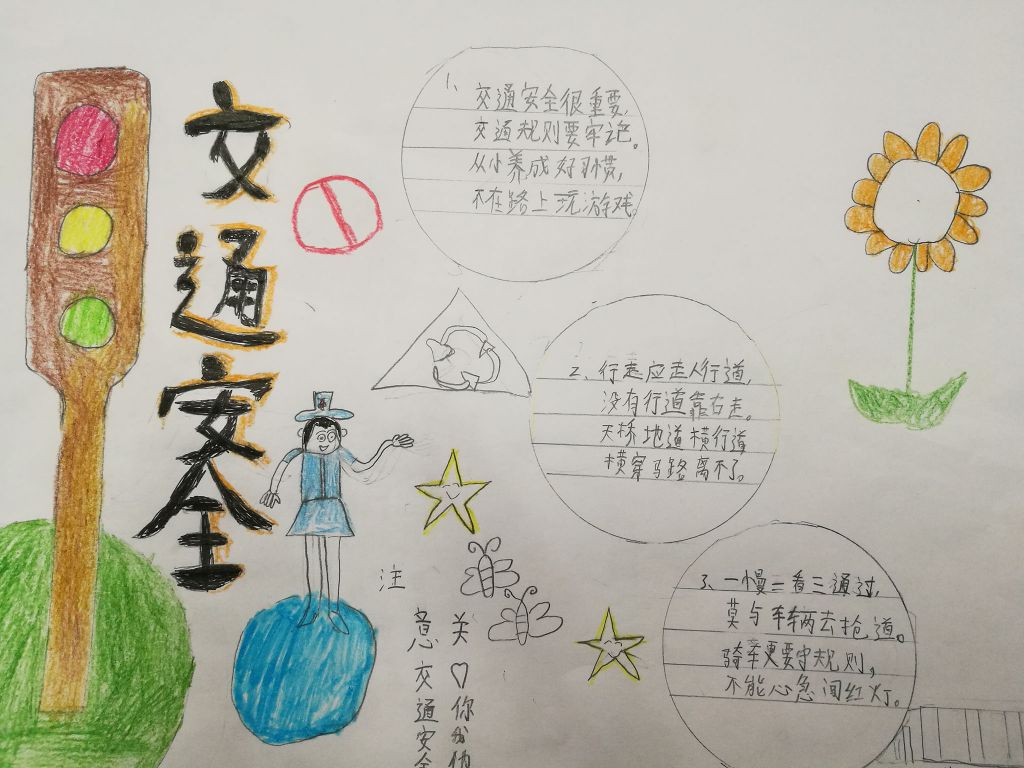 交通安全
1、交通安全很重要,
交通规则要牢记。
从小养成好习惯,
不在路上玩游戏。
2、行走应走人行道,
没有行道靠右走。
天桥地道横行道
横穿马路离不了。
3、一慢二看三通过,
莫与车辆去抢道。
骑车更要守规则,
不能心急闯红灯。
注
意交通安全
关♡你我他